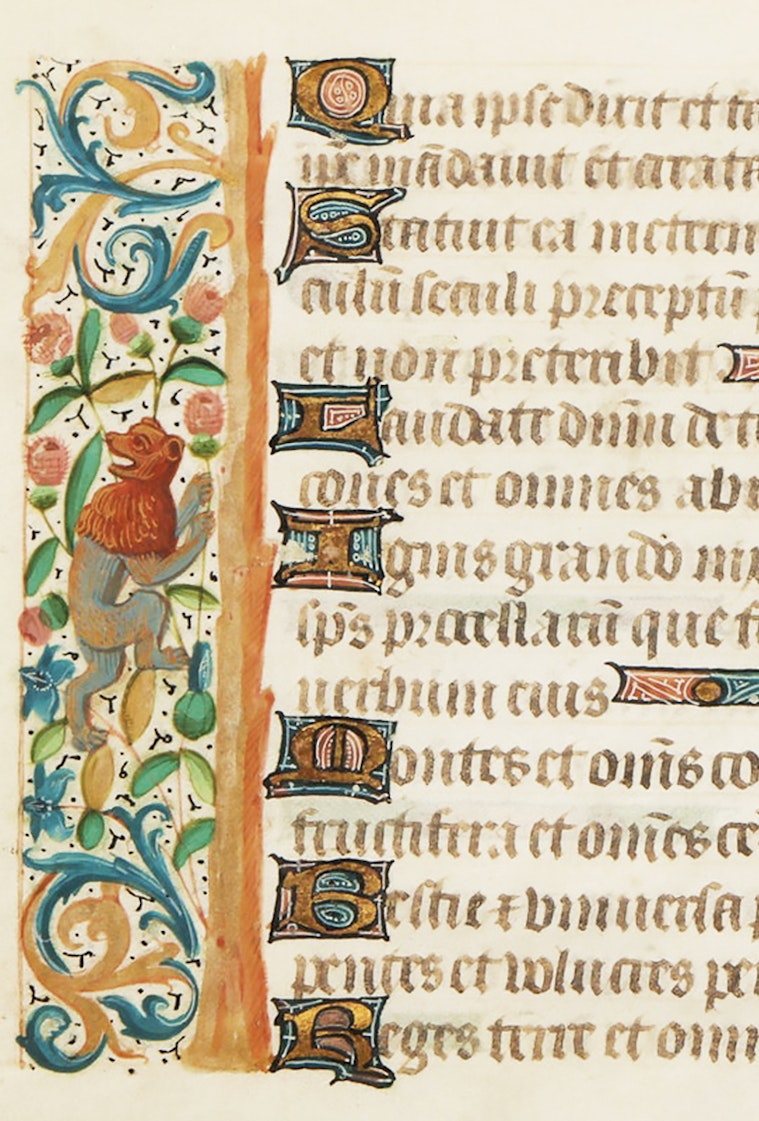 Quia ipse dixit et fa
ipe mādauit et creata
Statuit ea in etern
culū seculi preceptū p
et non preteribit
Laudate dn̄m de te
cones et omnes abi
Ignis grando nix
sp̄s procellarū que f
uerbum eius
Montes et om̄s co
fructifera et om̄es ce
Bestie et vniuersa p
pentes et uolucres pe
Reges terre et omn